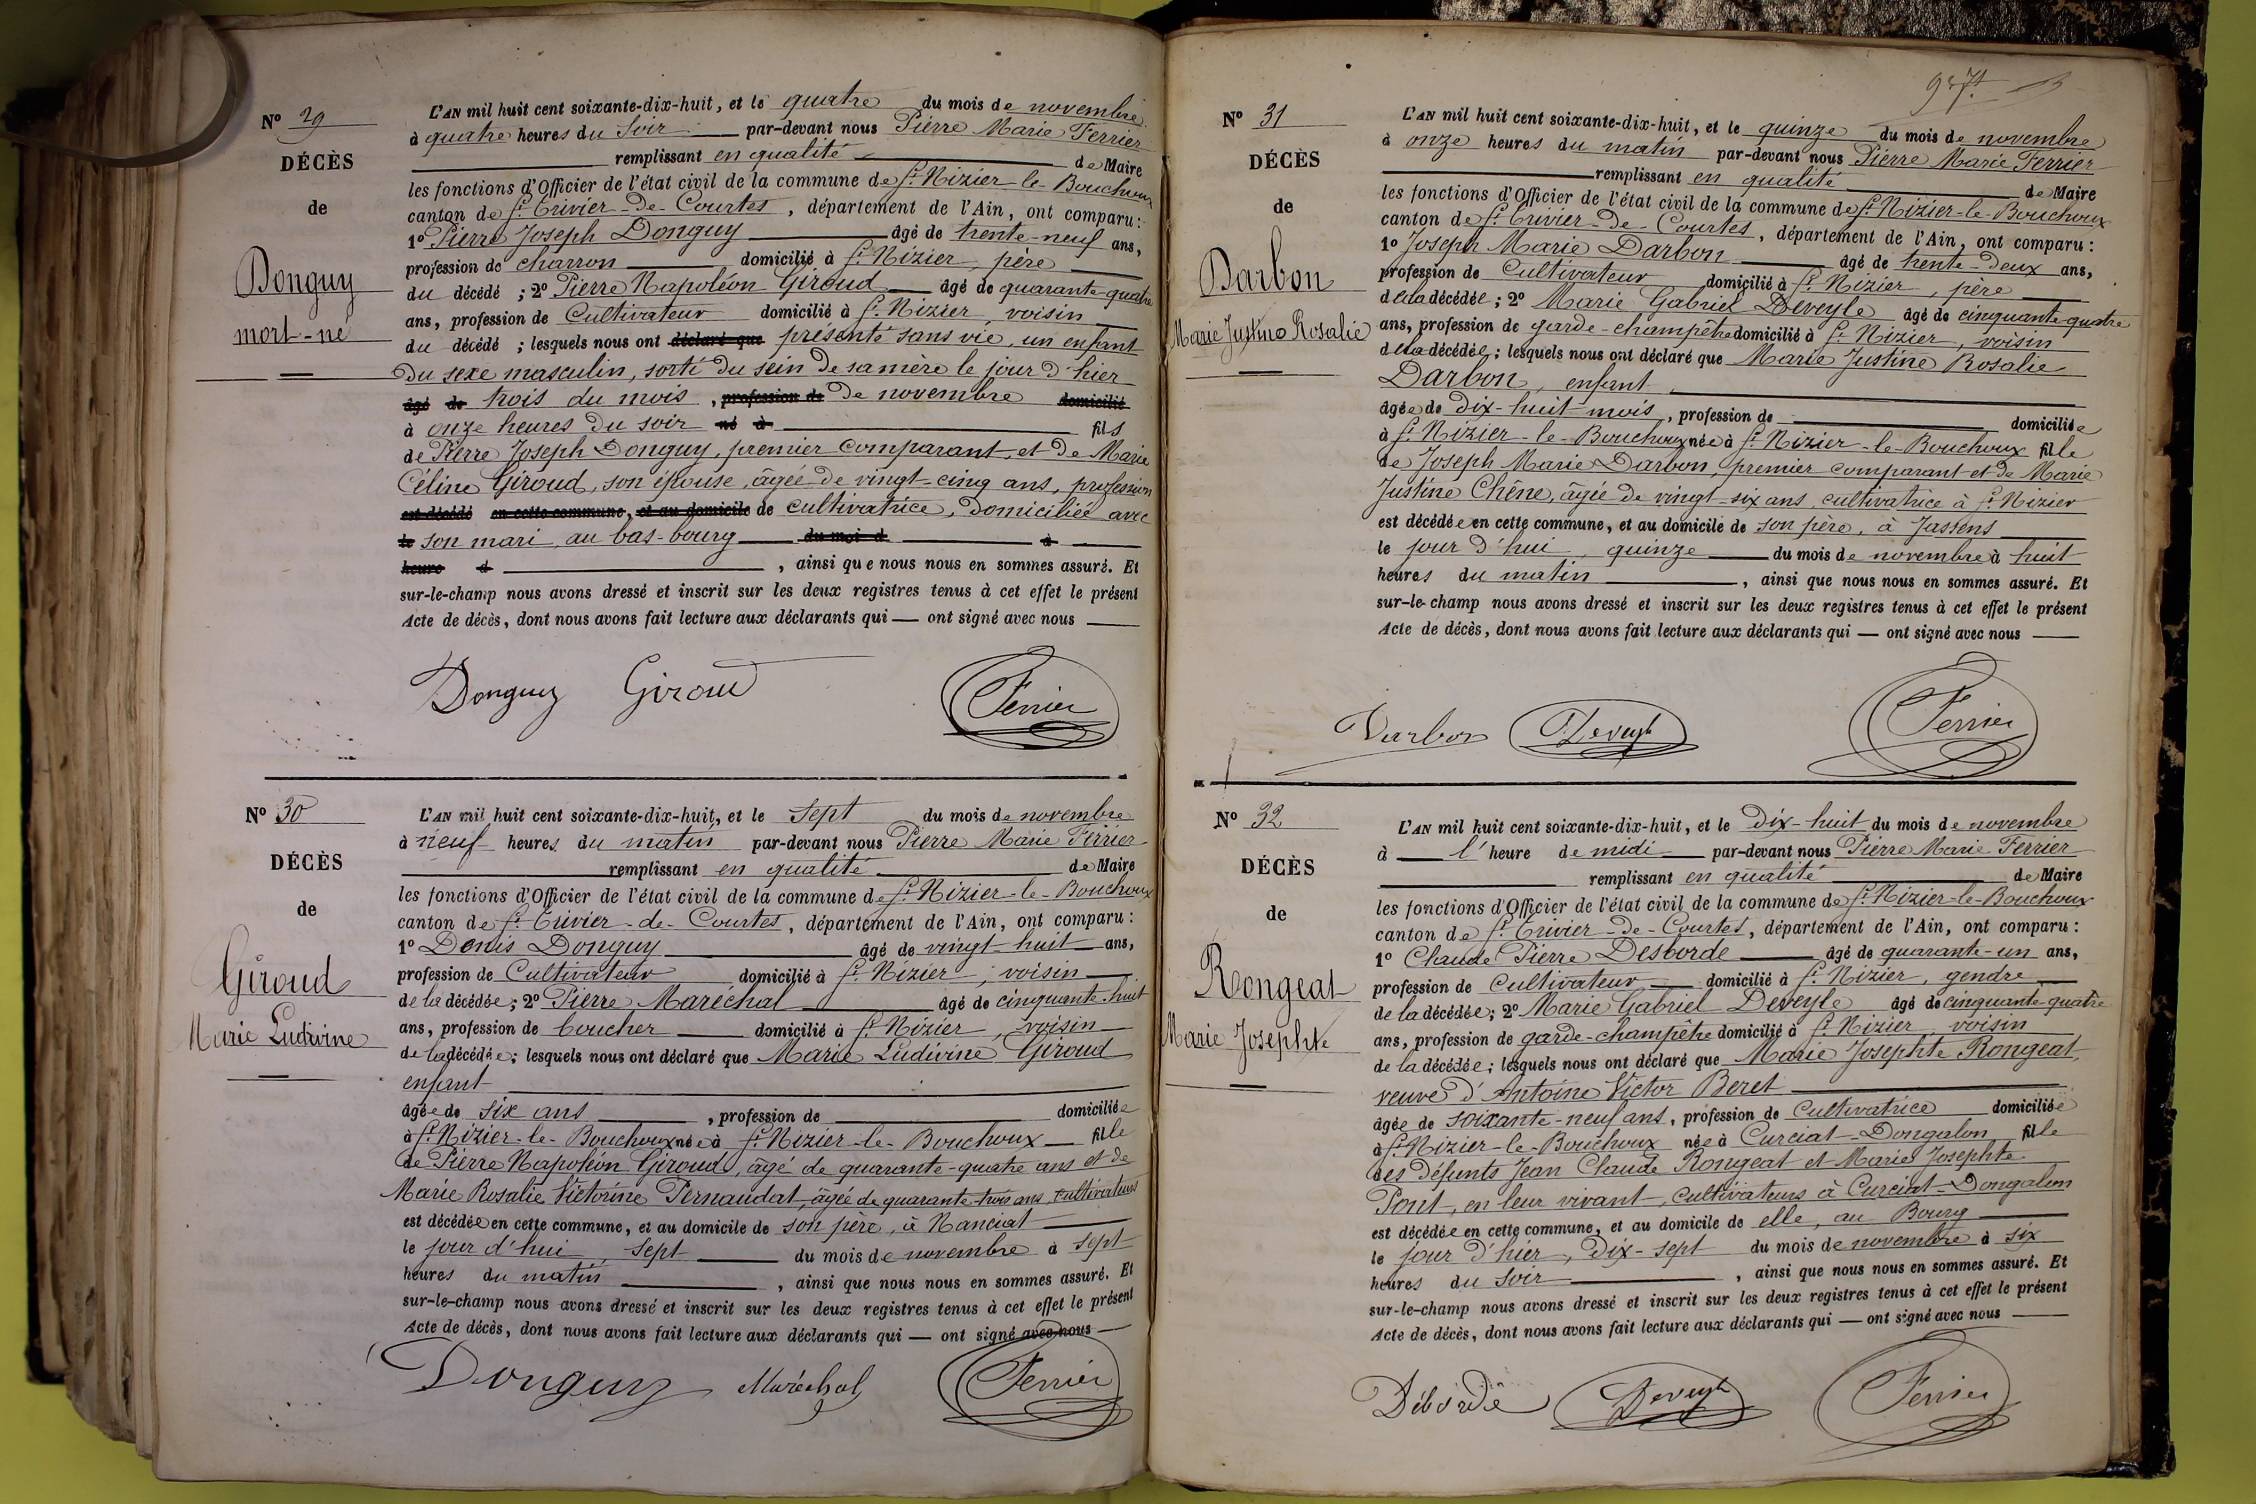 Nº 29
DÉCÈS
de
Donguy
mort-né
L'AN mil huit cent soixante-dix-huit, et le quatre du mois de novembre
à quatre heures du soir par-devant nous Pierre Marie Ferrier
remplissant en qualité de Maire
les fonctions d'Officier de l'état civil de la commune de St Nizier-le-Bouchoux
canton de St Trivier-de-Courtes, département de l'Ain, ont comparu :
1º Pierre Joseph Donguy âgé de trente-neuf ans,
profession de charron domicilié à St Nizier, père
du décédé ; 2º Pierre Napoléon Giroud âgé de quarante-quatre
ans, profession de Cultivateur domicilié à St Nizier, voisin
du décédé ; lesquels nous ont déclaré que présenté sans vie, un enfant
du sexe masculin, sorti du sein de sa mère le jour d'hier
âgé de trois du mois, profession de de novembre domicilié
à onze heures du soir né à fils
de Pierre Joseph Donguy, premier comparant, et de Marie
Céline Giroud, son épouse, âgée de vingt-cinq ans, profession
est décédé en cette commune, et au domicile de de cultivatrice, domiciliée avec
le son mari, au bas-bourg du moi d à
heure d , ainsi que nous nous en sommes assuré. Et
sur-le-champ nous avons dressé et inscrit sur les deux registres tenus à cet effet le présent
Acte de décès, dont nous avons fait lecture aux déclarants qui — ont signé avec nous
Donguy Giroud Ferrier
Nº 30
DÉCÈS
de
Giroud
Marie Ludivine
L'AN mil huit cent soixante-dix-huit, et le sept du mois de novembre
à neuf heures du matin par-devant nous Pierre Marie Ferrier
remplissant en qualité de Maire
les fonctions d'Officier de l'état civil de la commune de St Nizier-le-Bouchoux
canton de St Trivier-de-Courtes, département de l'Ain, ont comparu :
1º Denis Donguy âgé de vingt-huit ans,
profession de Cultivateur domicilié à St Nizier, voisin
de la décédée ; 2º Pierre Maréchal âgé de cinquante-huit
ans, profession de boucher domicilié à St Nizier, voisin
de la décédée ; lesquels nous ont déclaré que Marie Ludivine Giroud
enfant
âgée de six ans, profession de domiciliée
à St Nizier-le-Bouchoux née à St Nizier-le-Bouchoux fille
de Pierre Napoléon Giroud, âgé de quarante-quatre ans et de
Marie Rosalie Victorine Pernaudat, âgée de quarante-trois ans, cultivateurs
est décédée en cette commune, et au domicile de son père, à Nanciat
le jour d'hui, sept du mois de novembre à sept
heures du matin, ainsi que nous nous en sommes assuré. Et
sur-le-champ nous avons dressé et inscrit sur les deux registres tenus à cet effet le présent
Acte de décès, dont nous avons fait lecture aux déclarants qui — ont signé avec nous
Donguy Maréchal Ferrier
Nº 31
DÉCÈS
de
Darbon
Marie Justine Rosalie
L'AN mil huit cent soixante-dix-huit, et le quinze du mois de novembre
à onze heures du matin par-devant nous Pierre Marie Ferrier
remplissant en qualité de Maire
les fonctions d'Officier de l'état civil de la commune de St Nizier-le-Bouchoux
canton de St Trivier-de-Courtes, département de l'Ain, ont comparu :
1º Joseph Marie Darbon âgé de trente-deux ans,
profession de Cultivateur domicilié à St Nizier, père
de la décédée ; 2º Marie Gabriel Deveyle âgé de cinquante-quatre
ans, profession de garde-champêtre domicilié à St Nizier, voisin
de la décédée ; lesquels nous ont déclaré que Marie Justine Rosalie
Darbon, enfant
âgée de dix-huit mois, profession de domiciliée
à St Nizier-le-Bouchoux née à St Nizier-le-Bouchoux fille
de Joseph Marie Darbon, premier comparant et de Marie
Justine Chêne, âgée de vingt-six ans, cultivatrice à St Nizier
est décédée en cette commune, et au domicile de son père, à Jassens
le jour d'hui, quinze du mois de novembre à huit
heures du matin, ainsi que nous nous en sommes assuré. Et
sur-le-champ nous avons dressé et inscrit sur les deux registres tenus à cet effet le présent
Acte de décès, dont nous avons fait lecture aux déclarants qui — ont signé avec nous
Darbon Deveyle Ferrier
Nº 32
DÉCÈS
de
Rongeat
Marie Josephte
L'AN mil huit cent soixante-dix-huit, et le dix-huit du mois de novembre
à l'heure de midi par-devant nous Pierre Marie Ferrier
remplissant en qualité de Maire
les fonctions d'Officier de l'état civil de la commune de St Nizier-le-Bouchoux
canton de St Trivier-de-Courtes, département de l'Ain, ont comparu :
1º Claude Pierre Desborde âgé de quarante-un ans,
profession de Cultivateur domicilié à St Nizier, gendre
de la décédée ; 2º Marie Gabriel Deveyle âgé de cinquante-quatre
ans, profession de garde-champêtre domicilié à St Nizier, voisin
de la décédée ; lesquels nous ont déclaré que Marie Josephte Rongeat,
veuve d'Antoine Victor Beret
âgée de soixante-neuf ans, profession de Cultivatrice domiciliée
à St Nizier-le-Bouchoux née à Curciat-Dongalon fille
des défunts Jean Claude Rongeat et Marie Josephte
Pont, en leur vivant, cultivateurs à Curciat-Dongalon
est décédée en cette commune, et au domicile de elle, au Bourg
le jour d'hier, dix-sept du mois de novembre à six
heures du soir, ainsi que nous nous en sommes assuré. Et
sur-le-champ nous avons dressé et inscrit sur les deux registres tenus à cet effet le présent
Acte de décès, dont nous avons fait lecture aux déclarants qui — ont signé avec nous
Déborde Deveyle Ferrier